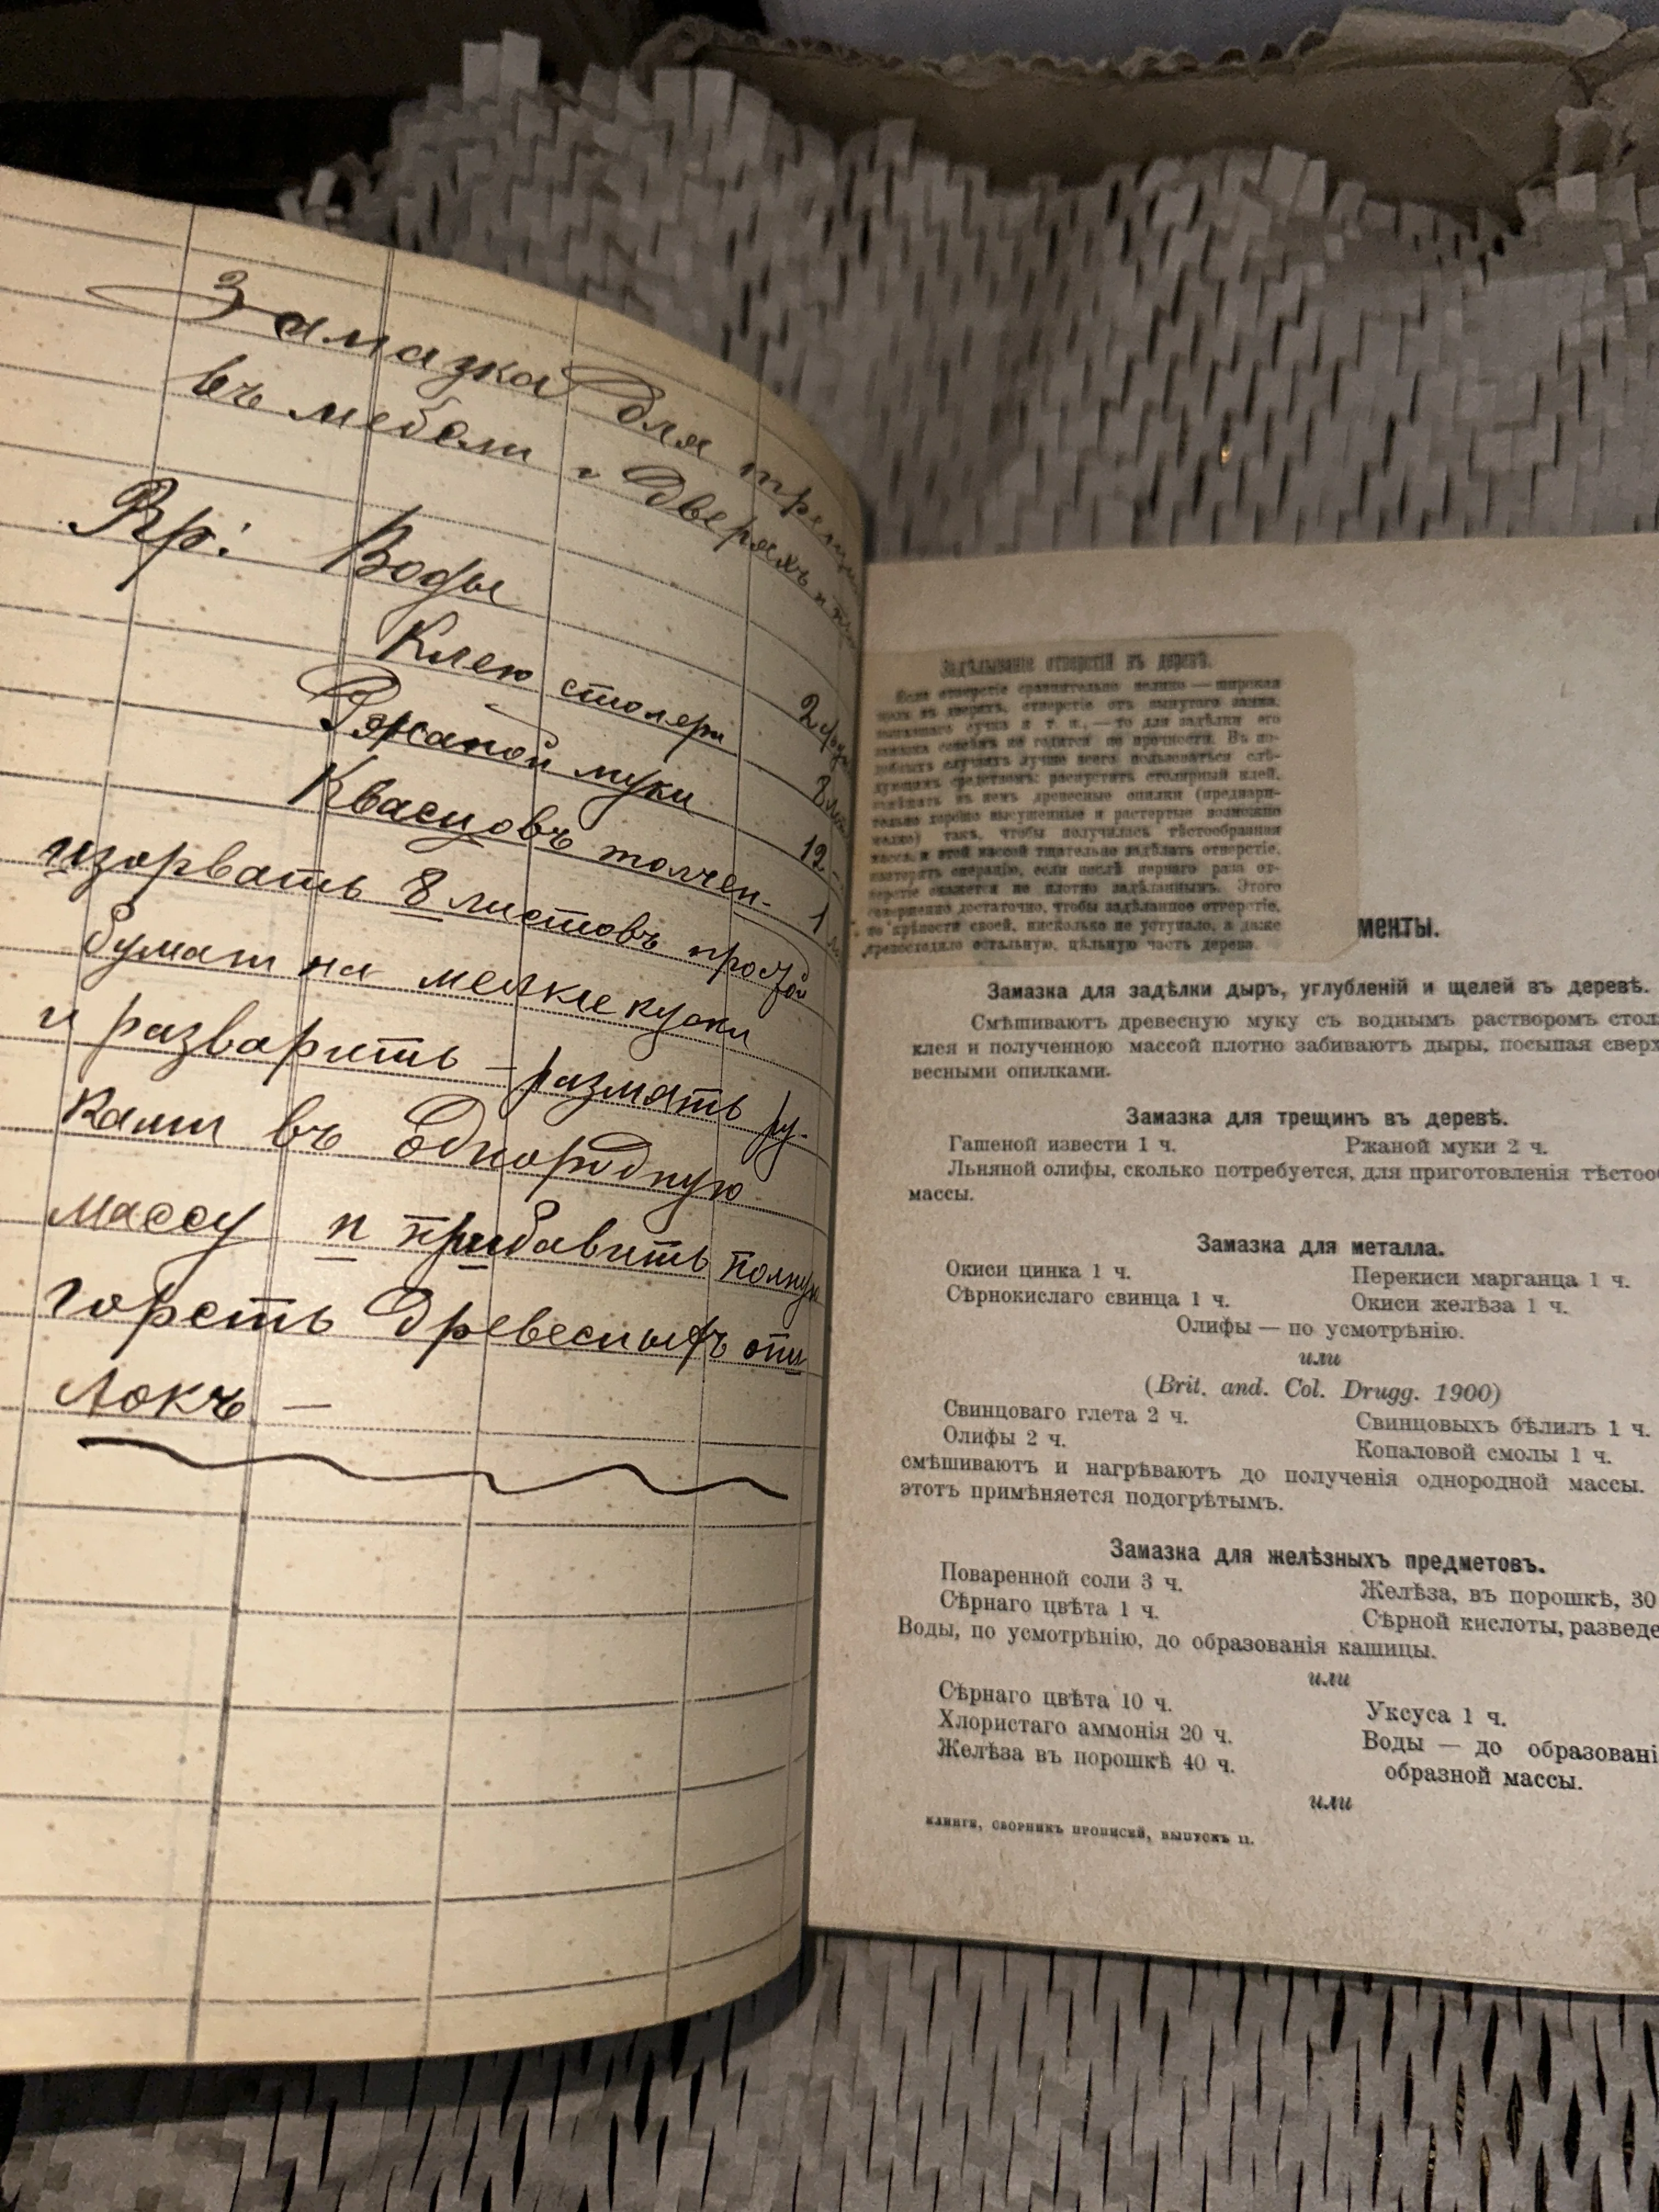 Замазка для трещин
въ мебели и дверяхъ и
Rp: Воды 2 фун
Клею столярн 8
Ржаной муки 12 -
Квасцовъ толчен. 1
изорвать 8 листовъ простой
бумаги на мелкие куски
и разварить – размять ру-
ками въ однородную
массу и прибавить полную
горсть древесныхъ опи
локъ —
Задѣлываніе отверстій въ деревѣ.
Если отверстіе сравнительно велико — широкая
щель въ дверяхъ, отверстіе отъ вынутаго замка,
выпавшаго сучка и т. п., — то для задѣлки его
замазка совсѣмъ не годится по прочности. Въ по-
добныхъ случаяхъ лучше всего пользоваться слѣ-
дующимъ средствомъ: распустить столярный клей,
смѣшать въ немъ древесные опилки (предвари-
тельно хорошо высушенные и растертые возможно
мелко) такъ, чтобы получилась тѣстообразная
масса, и этой массой тщательно задѣлать отверстіе,
повторять операцію, если послѣ перваго раза от-
верстіе окажется не плотно задѣланнымъ. Этого
совершенно достаточно, чтобы задѣланное отверстіе,
по крѣпости своей, нисколько не уступало, а даже
превосходило остальную, цѣльную часть дерева.
менты.
Замазка для задѣлки дыръ, углубленій и щелей въ деревѣ.
Смѣшиваютъ древесную муку съ воднымъ растворомъ стол
клея и полученною массой плотно забиваютъ дыры, посыпая сверх
весными опилками.
Замазка для трещинъ въ деревѣ.
Гашеной извести 1 ч. Ржаной муки 2 ч.
Льняной олифы, сколько потребуется, для приготовленія тѣстоо
массы.
Замазка для металла.
Окиси цинка 1 ч. Перекиси марганца 1 ч.
Сѣрнокислаго свинца 1 ч. Окиси желѣза 1 ч.
Олифы — по усмотрѣнію.
или
(Brit. and. Col. Drugg. 1900)
Свинцоваго глета 2 ч. Свинцовыхъ бѣлилъ 1 ч.
Олифы 2 ч. Копаловой смолы 1 ч.
смѣшиваютъ и нагрѣваютъ до полученія однородной массы.
этотъ примѣняется подогрѣтымъ.
Замазка для желѣзныхъ предметовъ.
Поваренной соли 3 ч. Желѣза, въ порошкѣ, 30
Сѣрнаго цвѣта 1 ч. Сѣрной кислоты, разведе
Воды, по усмотрѣнію, до образованія кашицы.
или
Сѣрнаго цвѣта 10 ч. Уксуса 1 ч.
Хлористаго аммонія 20 ч. Воды — до образовані
Желѣза въ порошкѣ 40 ч. образной массы.
или
КЛИНГЕ, СБОРНИКЪ ПРОПИСЕЙ, ВЫПУСКЪ II.